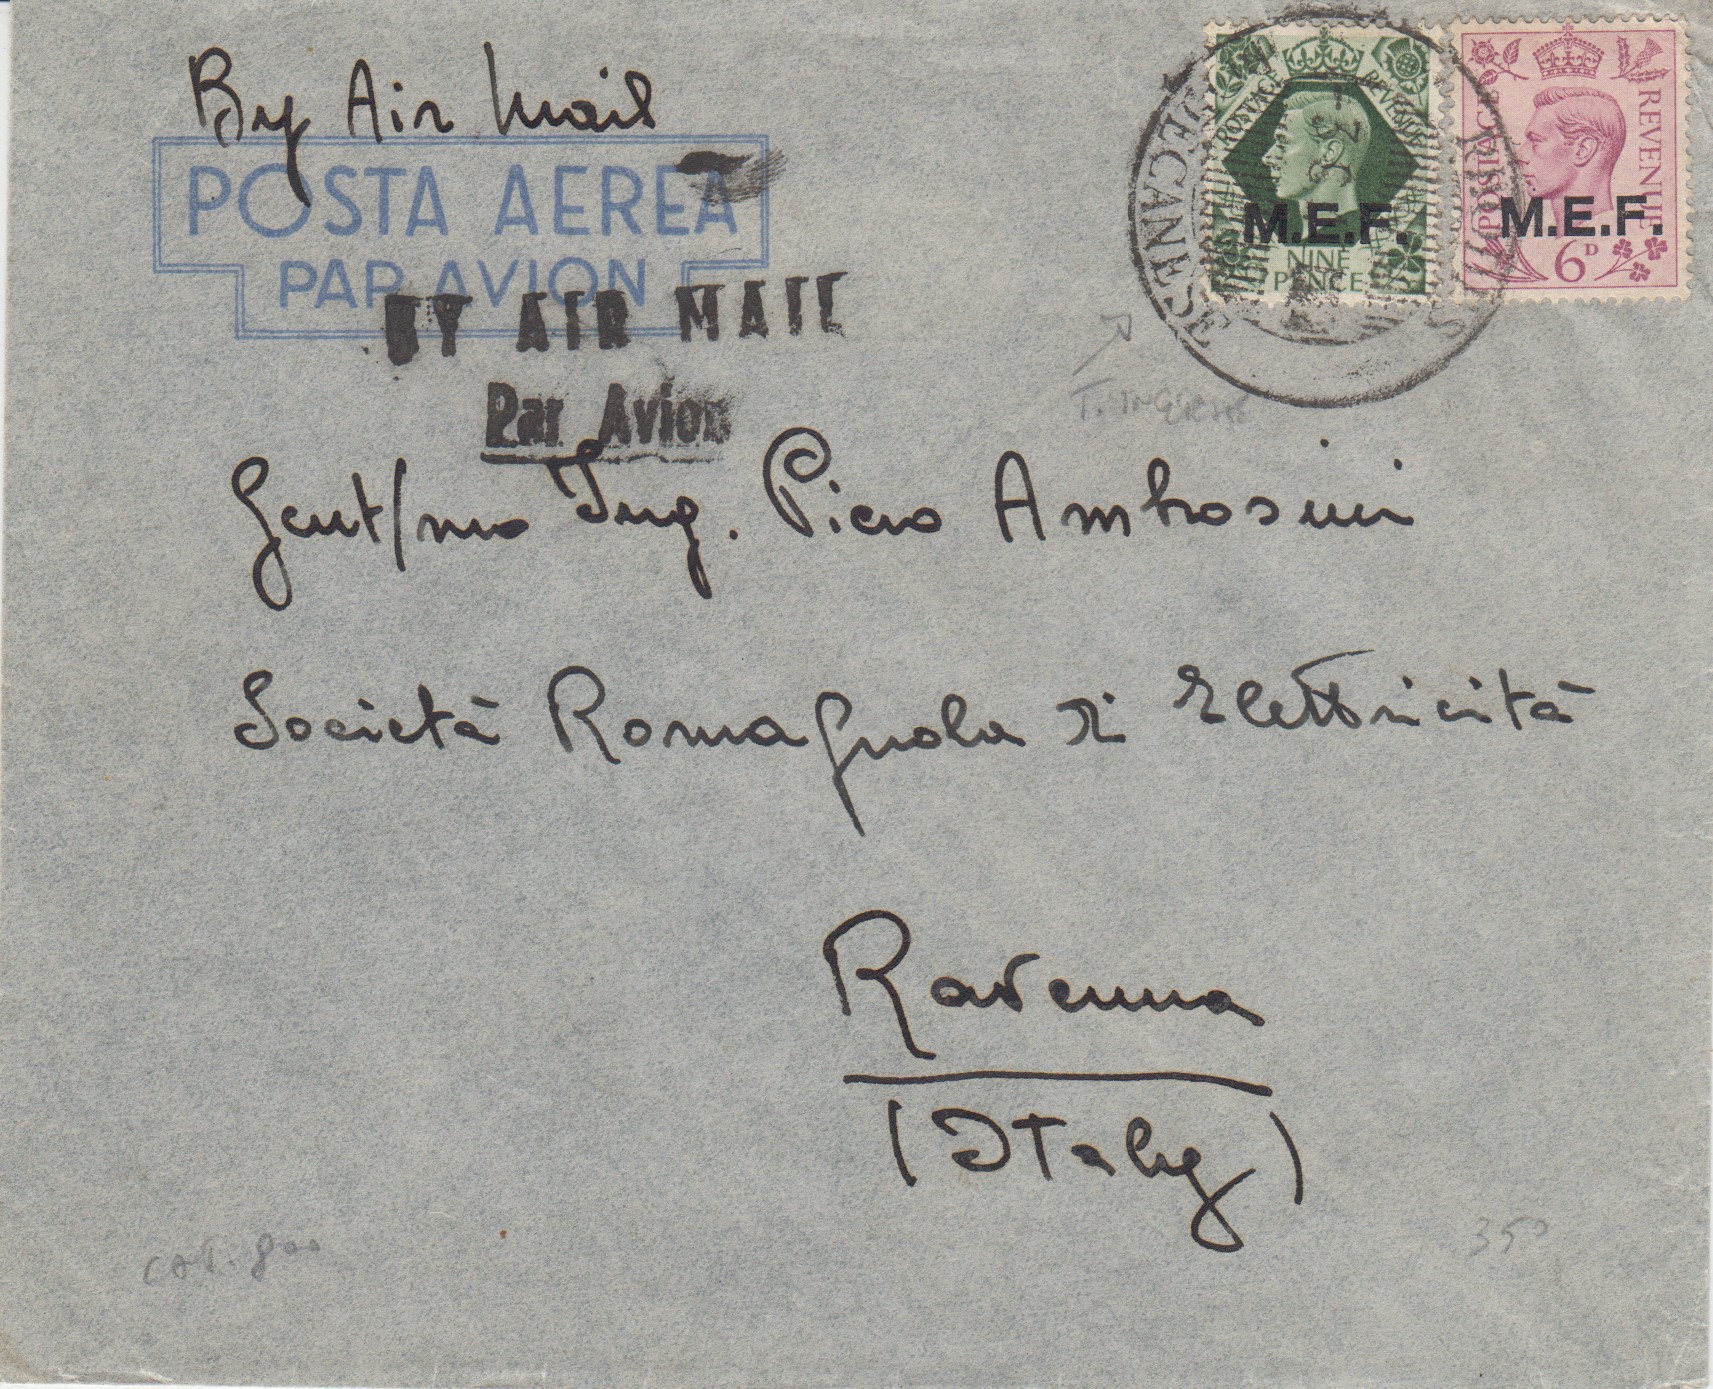 By Air Mail
POSTA AEREA
PAR AVION
BY AIR MAIL
Par Avion
POSTAGE REVENUE
M.E.F.
NINE
PENCE
POSTAGE REVENUE
M.E.F.
6D
Gent/mo Ing. Piero Ambrosini
Società Romagnola di Elettricità
Ravenna
(Italy)
CAT. 800
350